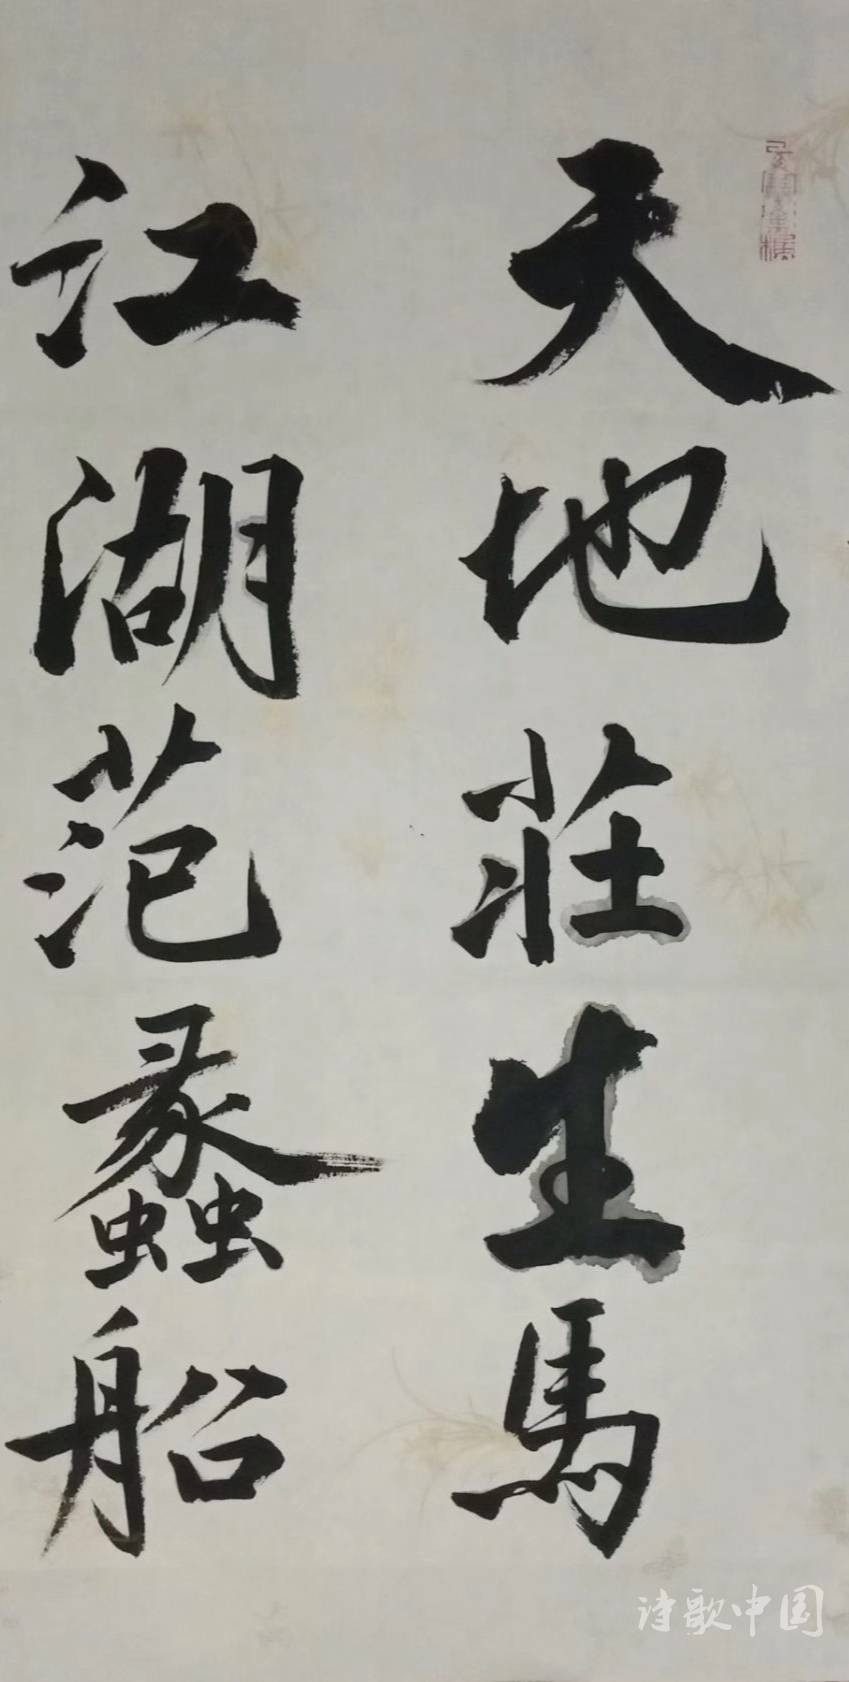 天地莊生馬
江湖范蠡船
诗歌中国